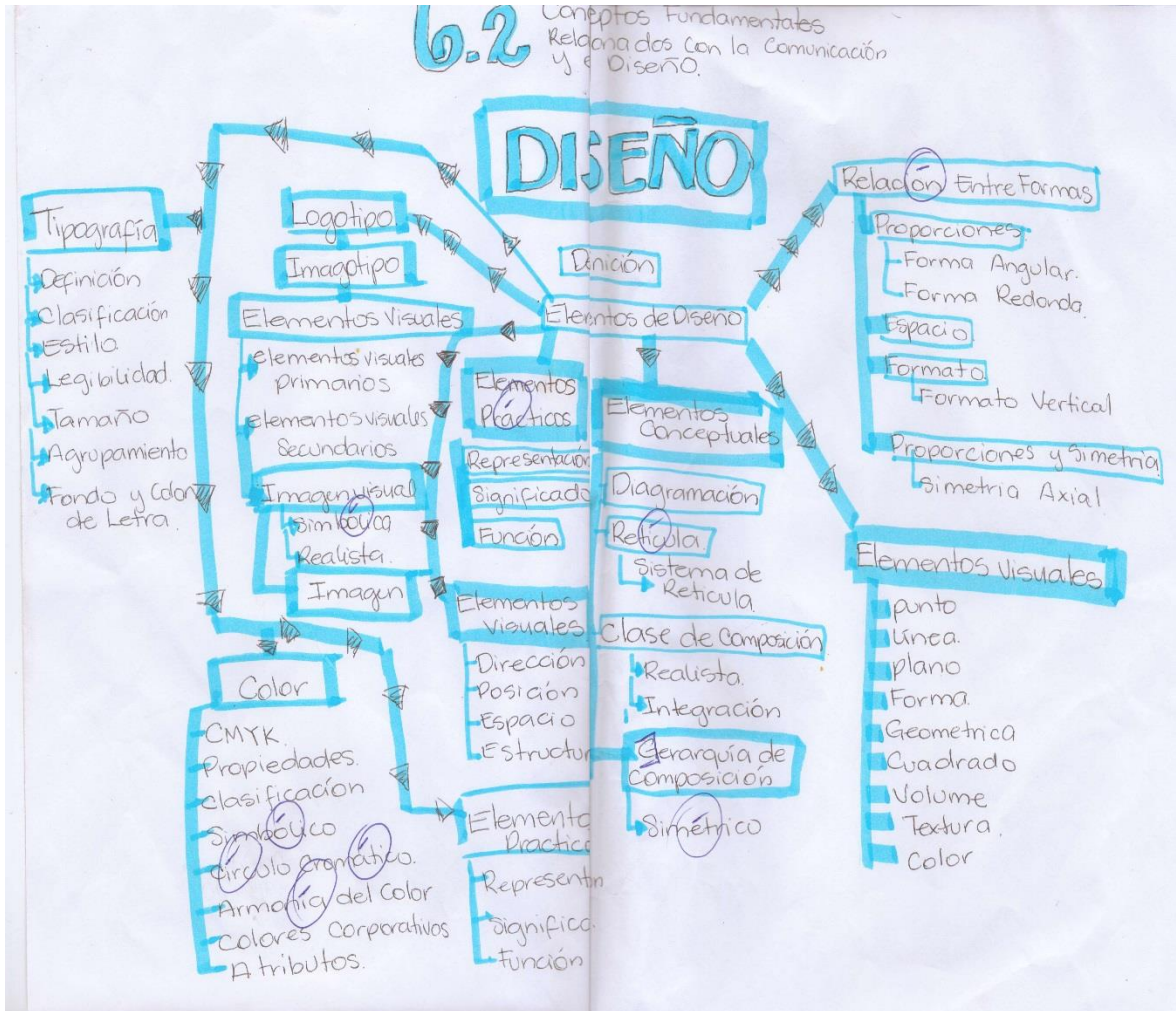 6.2
Coneptos Fundamentales
Relaonados con la Comunicación
y e Diseño.
DISEÑO
Denición
Elementos de Diseño
Tipografía
Definición
Clasificación
Estilo
Legibilidad.
Tamaño
Agrupamiento
Fondo y Color
de Letra.
Logotipo
Imagotipo
Elementos Visuales
elementos visuales
primarios
elementos visuales
Secundarios
Imagen visual
Simbólica
Realista.
Imagen
Color
CMYK.
Propiedades.
Clasificación
Simbólico
Círculo Cromático.
Armonía del Color
Colores Corporativos
Atributos.
Elementos
Prácticos
Representación
Significado
Función
Elementos
Visuales
Dirección
Posición
Espacio
Estructur
Elemento
Practico
Represent
Significa
Función
Elementos
Conceptuales
Diagramación
Retícula.
Sistema de
Reticula.
Clase de Composición
Realista.
Integración
Jerarquía de
Composición
Simétrico
Relación Entre Formas
Proporciones
Forma Angular.
Forma Redonda.
Espacio
Formato
Formato Vertical
Proporciones y Simetria
Simetria Axial
Elementos Visuales
punto
Línea.
plano
Forma.
Geometrica
Cuadrado
Volume
Textura.
Color